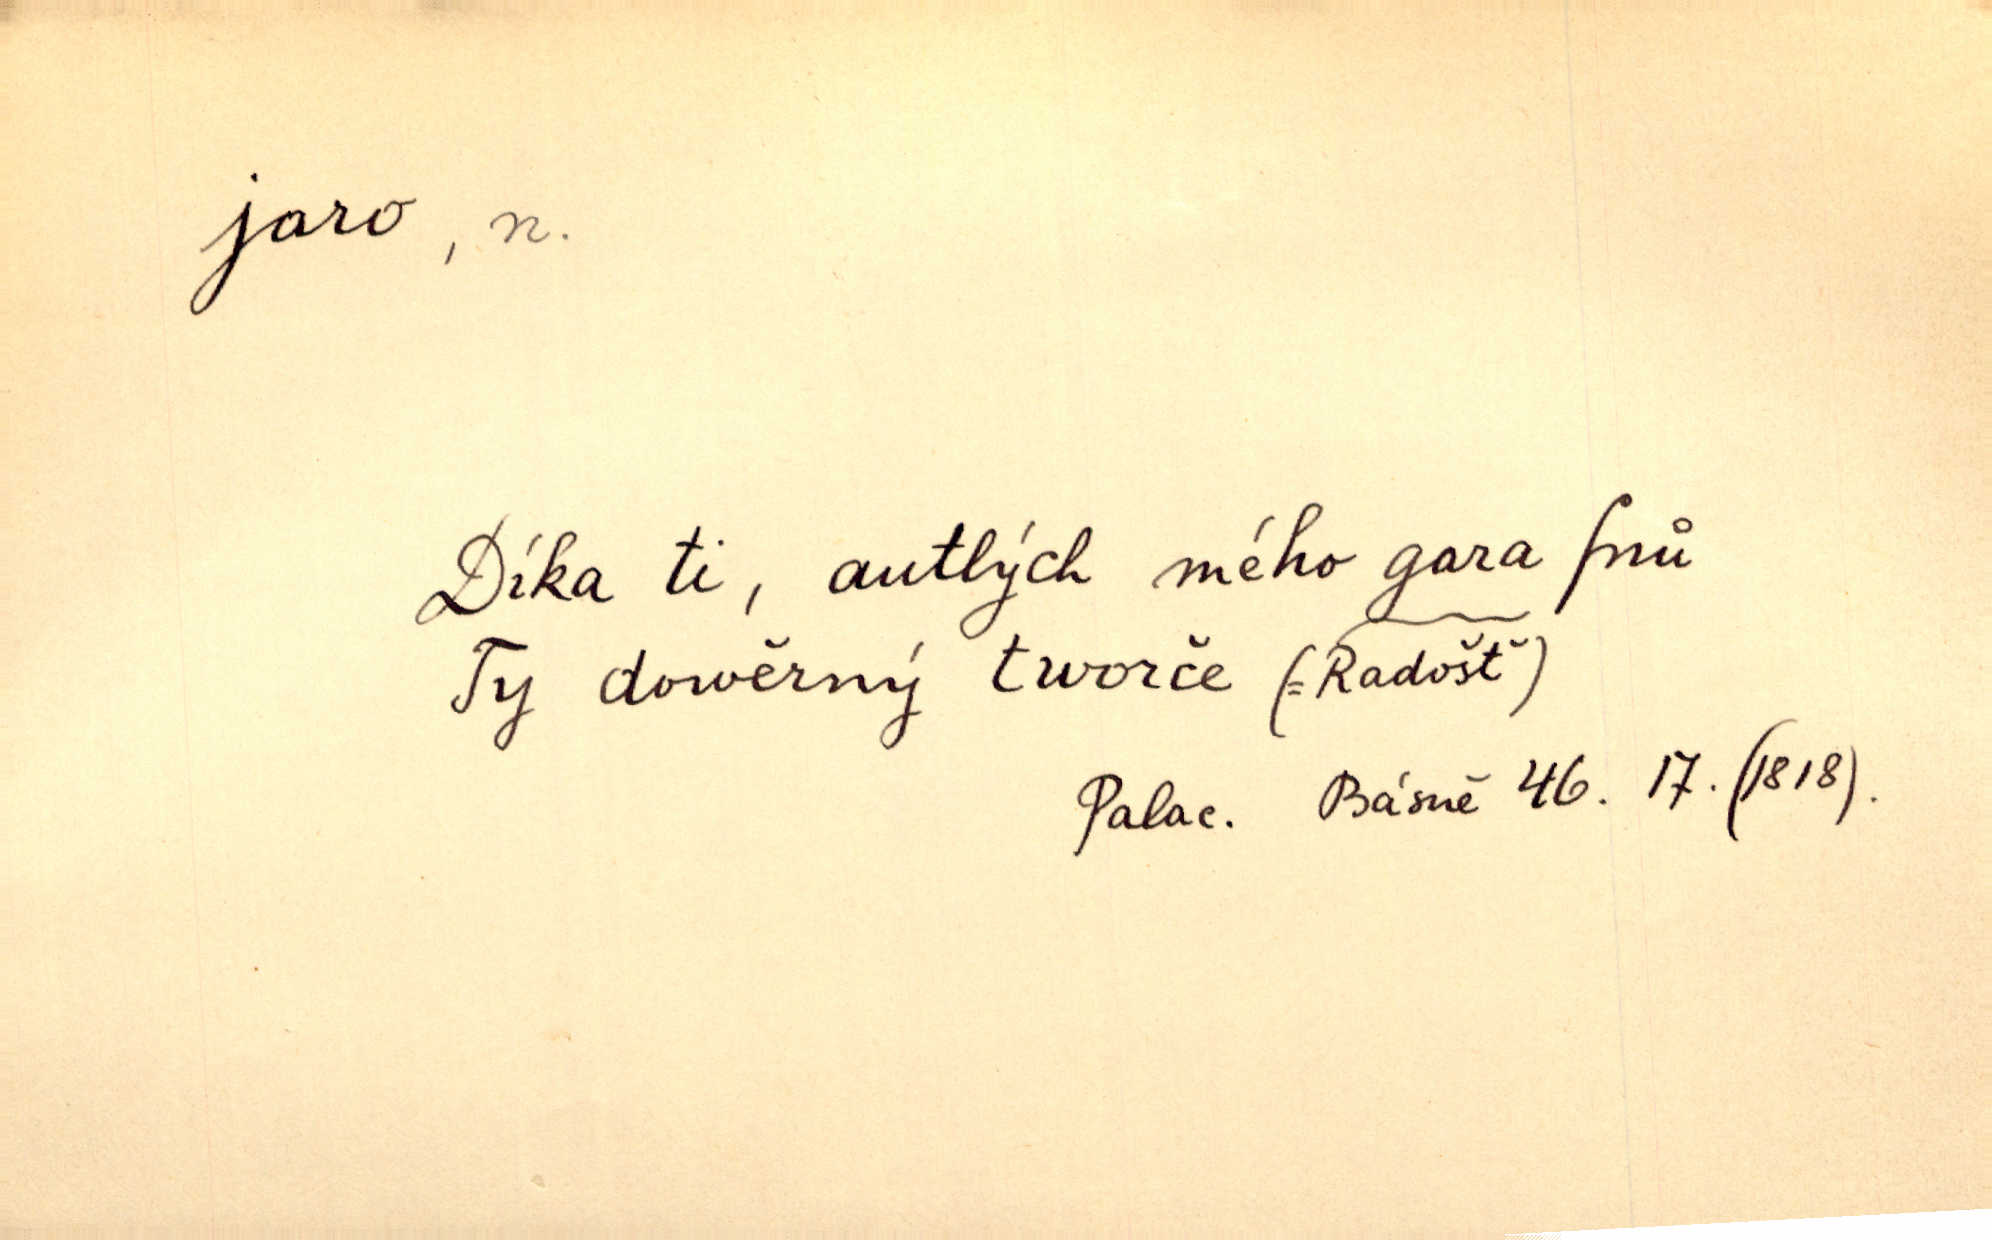 jaro, n.
Díka ti, autlých mého gara ſnů
Ty dowěrný tworče (= Radošť)
Palac. Básně 46. 17. (1818).